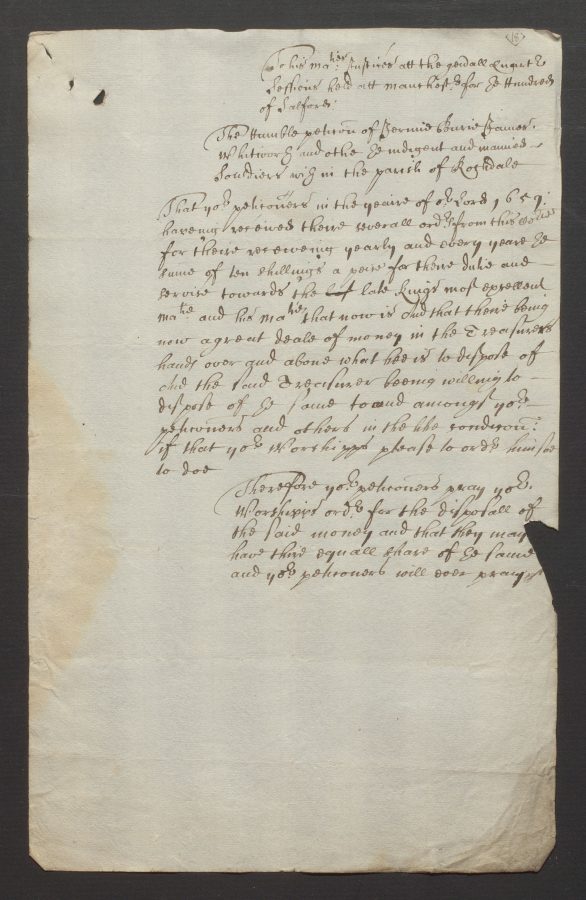 To his Matie's Justices att the genrall Quart &
Sessions held att Manchest & for ye Hundred
of Salford
The Humble peticon of James
Whitworth and othe ye indigent and maimed
Souldiers wth in the parish of Rochdale
That yor peticoners in the yeaire of or Lord 165
haveing received theire severall ordrs from this
for theire receiveing yearly and every yeare ye
sume of ten shillings a peice for theire dutie and
service towards the late Kings most excellent
Matie and his Matie that now is And that there being
now a great deale of money in the Treasurers
hands over and above what hee is to dispose of
And the said Treasurer beeing willing to
dispose of ye same to and amongst yor
peticoners and others in the like condicon:
if that yor Worshipps please to ordr him soe
to doe
Therefore yor peticoners pray yor
Worshipps ordr for the disposall of
the said money and that they may
have there equall share of ye same
and yor peticoners will ever pray